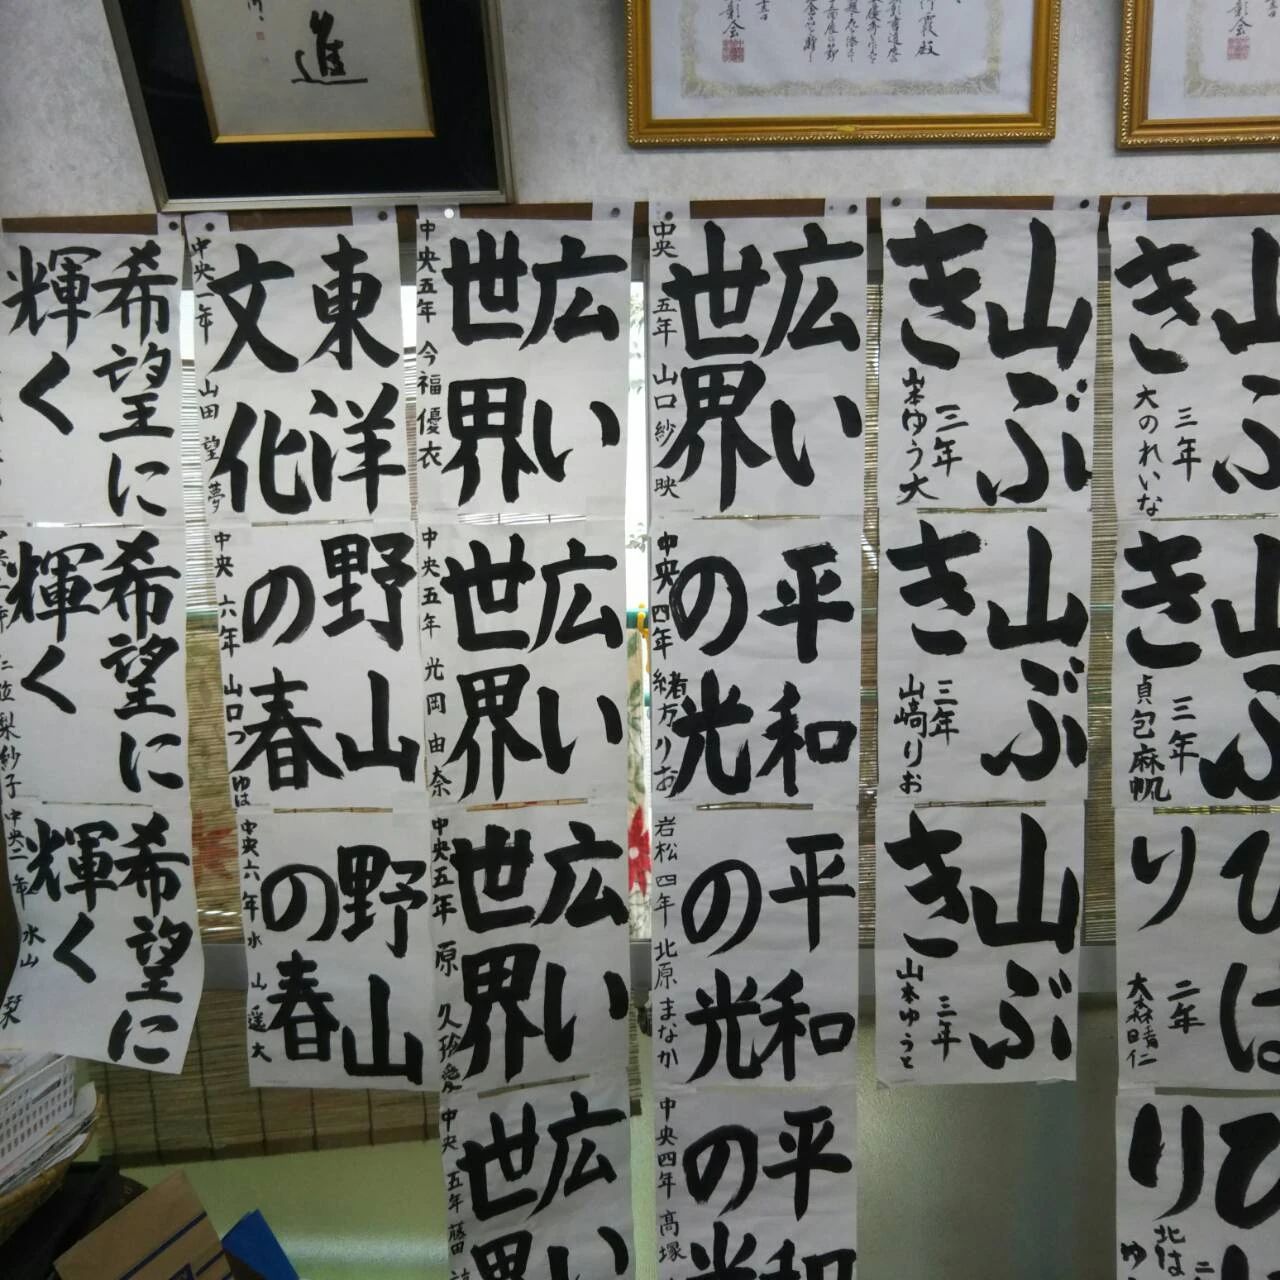 進
山
ぶ
き
三年
大のれいな
山
ぶ
き
三年
貞包麻帆
ひ
は
り
二年
大森晴仁
ひ
り
山ぶ
き
三年
山本ゆう大
山ぶ
き
三年
山崎りお
山ぶ
き
三年
山本ゆうと
広い
世界
中央 五年 山口紗映
平和
の光
中央四年 緒方りお
平和
の光
岩松四年 北原まなか
平和
の光
中央四年 高塚
広い
世界
中央五年 今福優衣
広い
世界
中央五年 光岡由奈
広い
世界
中央五年 原
広い
世界
中央 五年 藤田
東洋
文化
中央一年 山田望夢
野山
の春
中央 六年 山口
野山
の春
中央六年 水山遥大
希望に
輝く
希望に
輝く
梨紗子
希望に
輝く
中央二年 水山